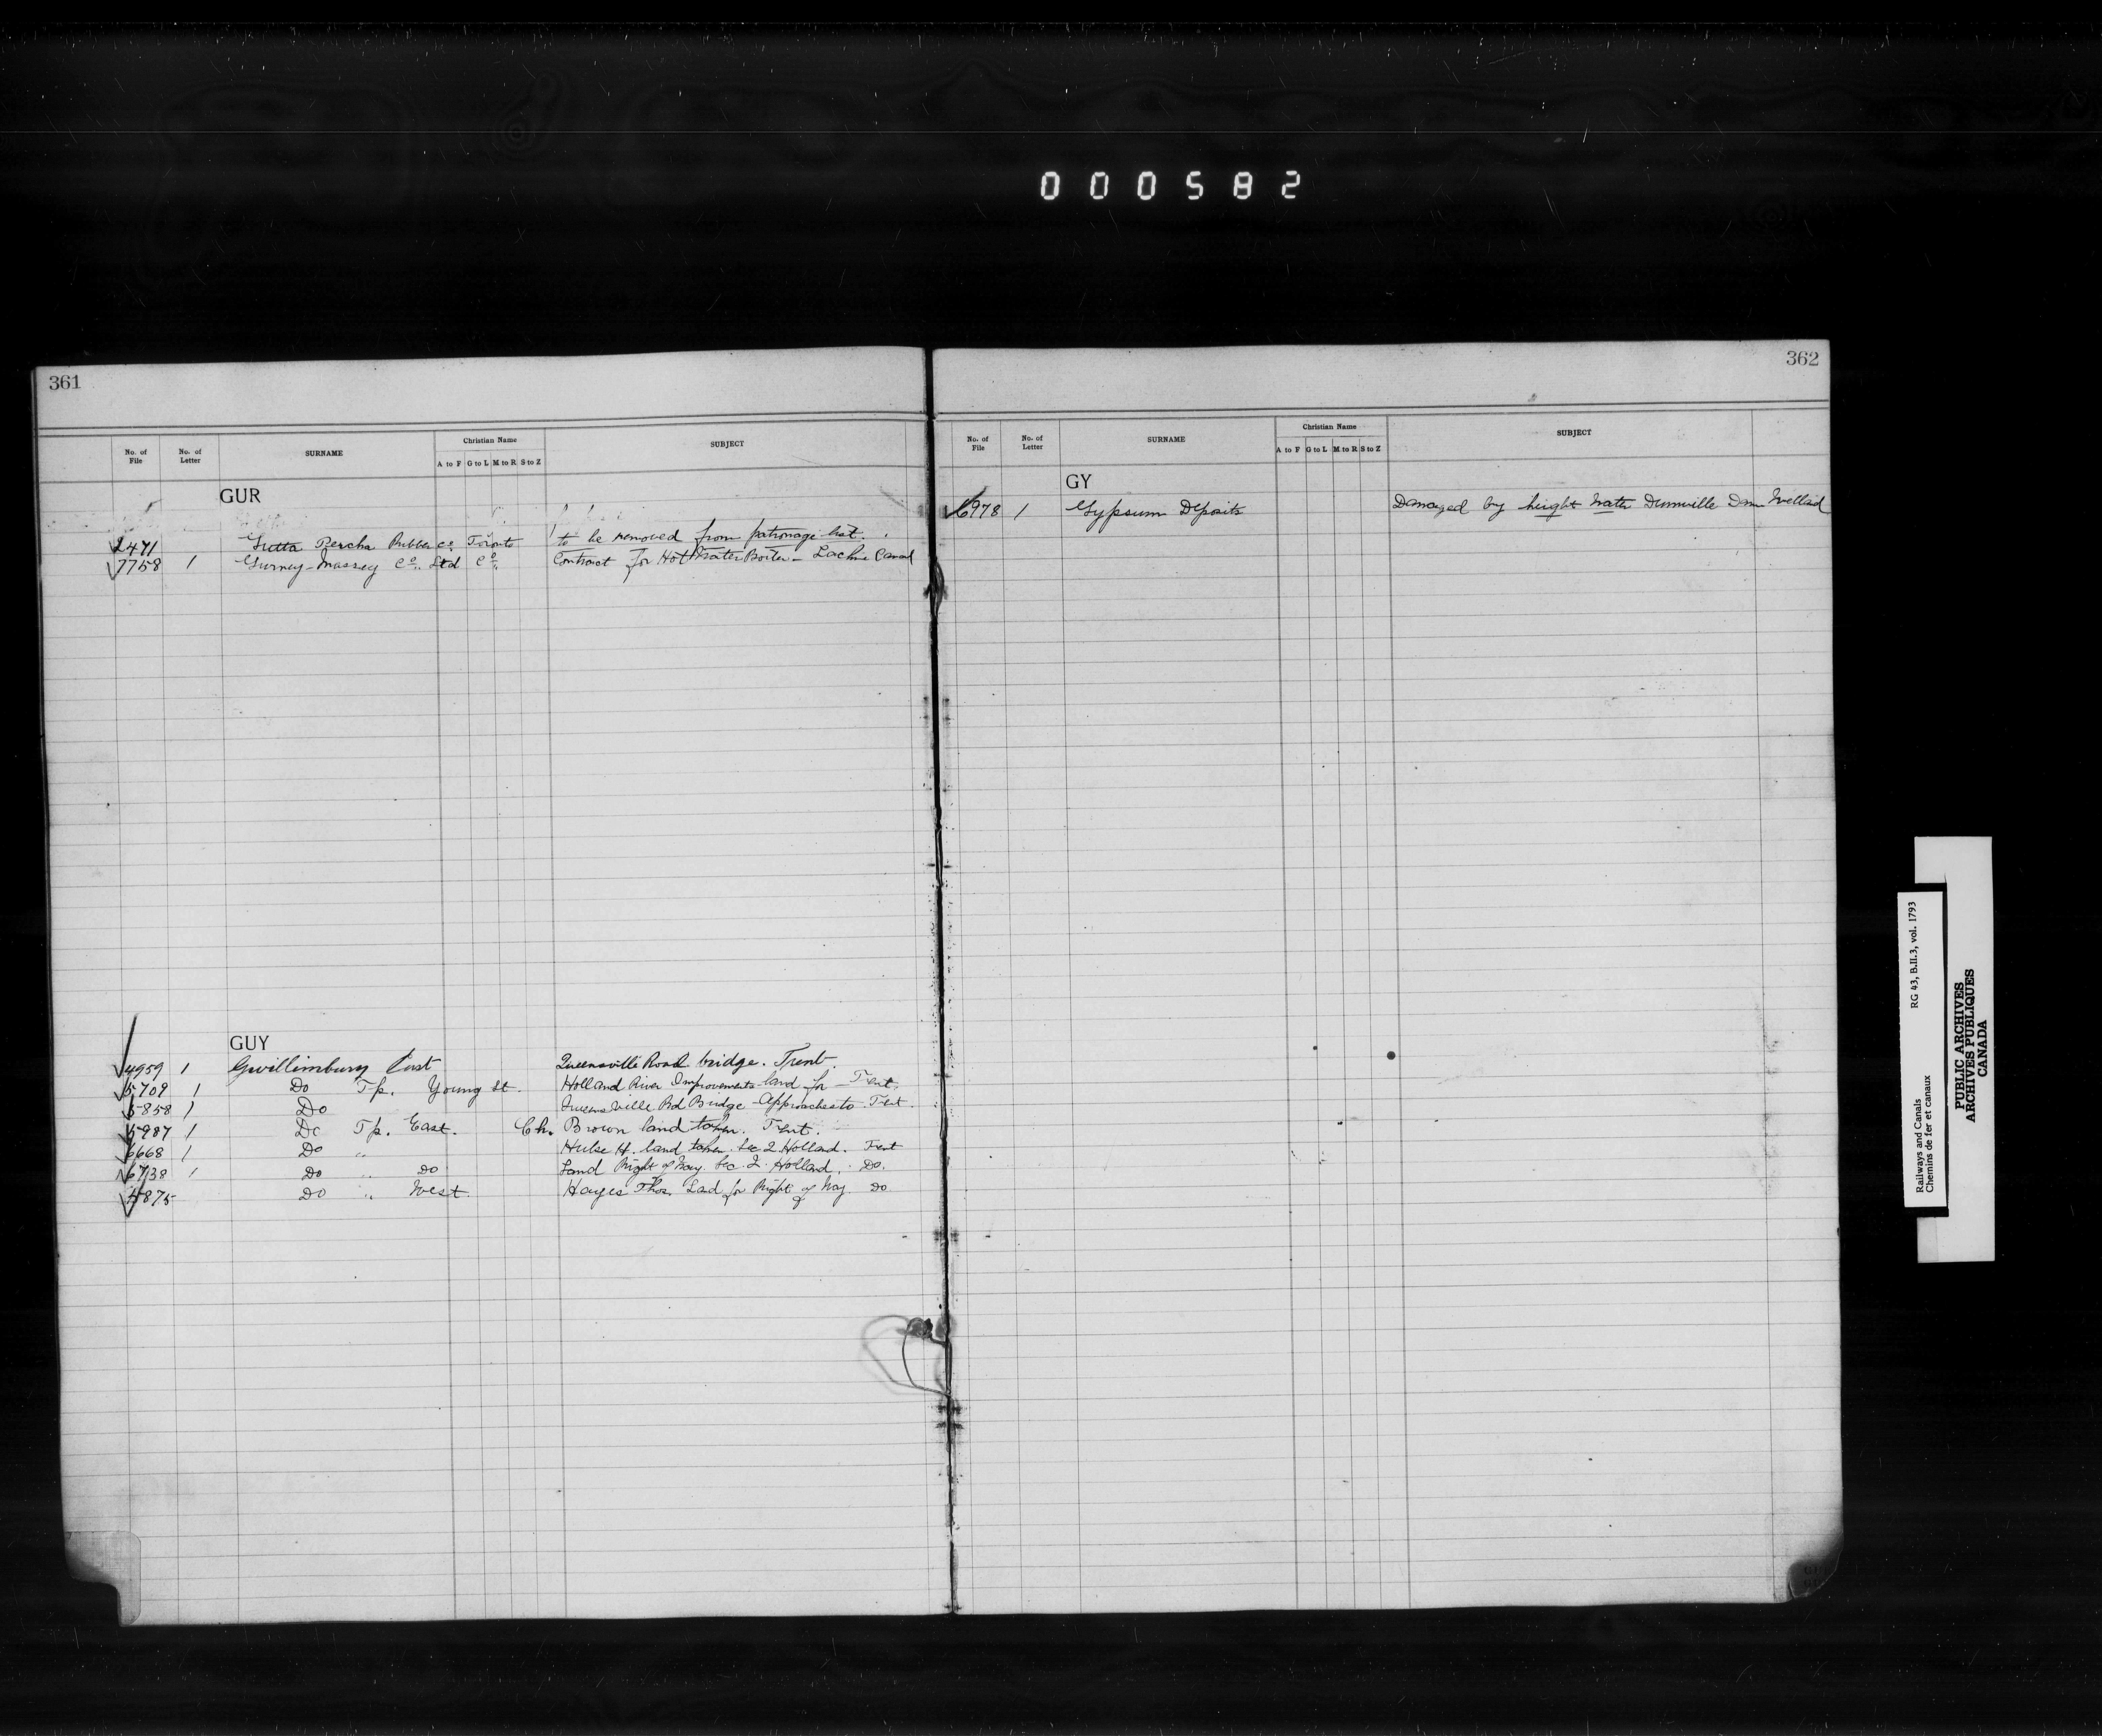 000582
361
No. of File No. of Letter SURNAME Christian Name A to F G to L M to R S to Z SUBJECT
GUR
2471 Gutta Percha Rubber Co. Toronto to be removed from patronage list.
7758 1 Gurney-Massey Co. Ltd Co. Contract for Hot Water Boiler - Lachine Canal
GUY
4959 1 Gwillimbury East Queensville Road bridge. Trent.
5709 1 Do Tp. Young St. Holland River Improvements land for - Trent.
5858 1 Do Queensville Rd Bridge - Approaches to. Trent.
5987 1 Do Tp. East. Ch. Brown land taken. Trent.
6668 1 Do " Hulse H. land taken. Sec 2 Holland. Trent
6738 1 Do " Do Land Right of Way. Sec. 2. Holland. Do.
4875 Do " West Hayes Thos. Land for Right of Way. Do
362
No. of File No. of Letter SURNAME Christian Name A to F G to L M to R S to Z SUBJECT
GY
6978 1 Gypsum Deposits Damaged by height Water Dunnville Dam Welland
Railways and Canals RG 43, B.II.3, vol. 1793
Chemins de fer et canaux
PUBLIC ARCHIVES
ARCHIVES PUBLIQUES
CANADA